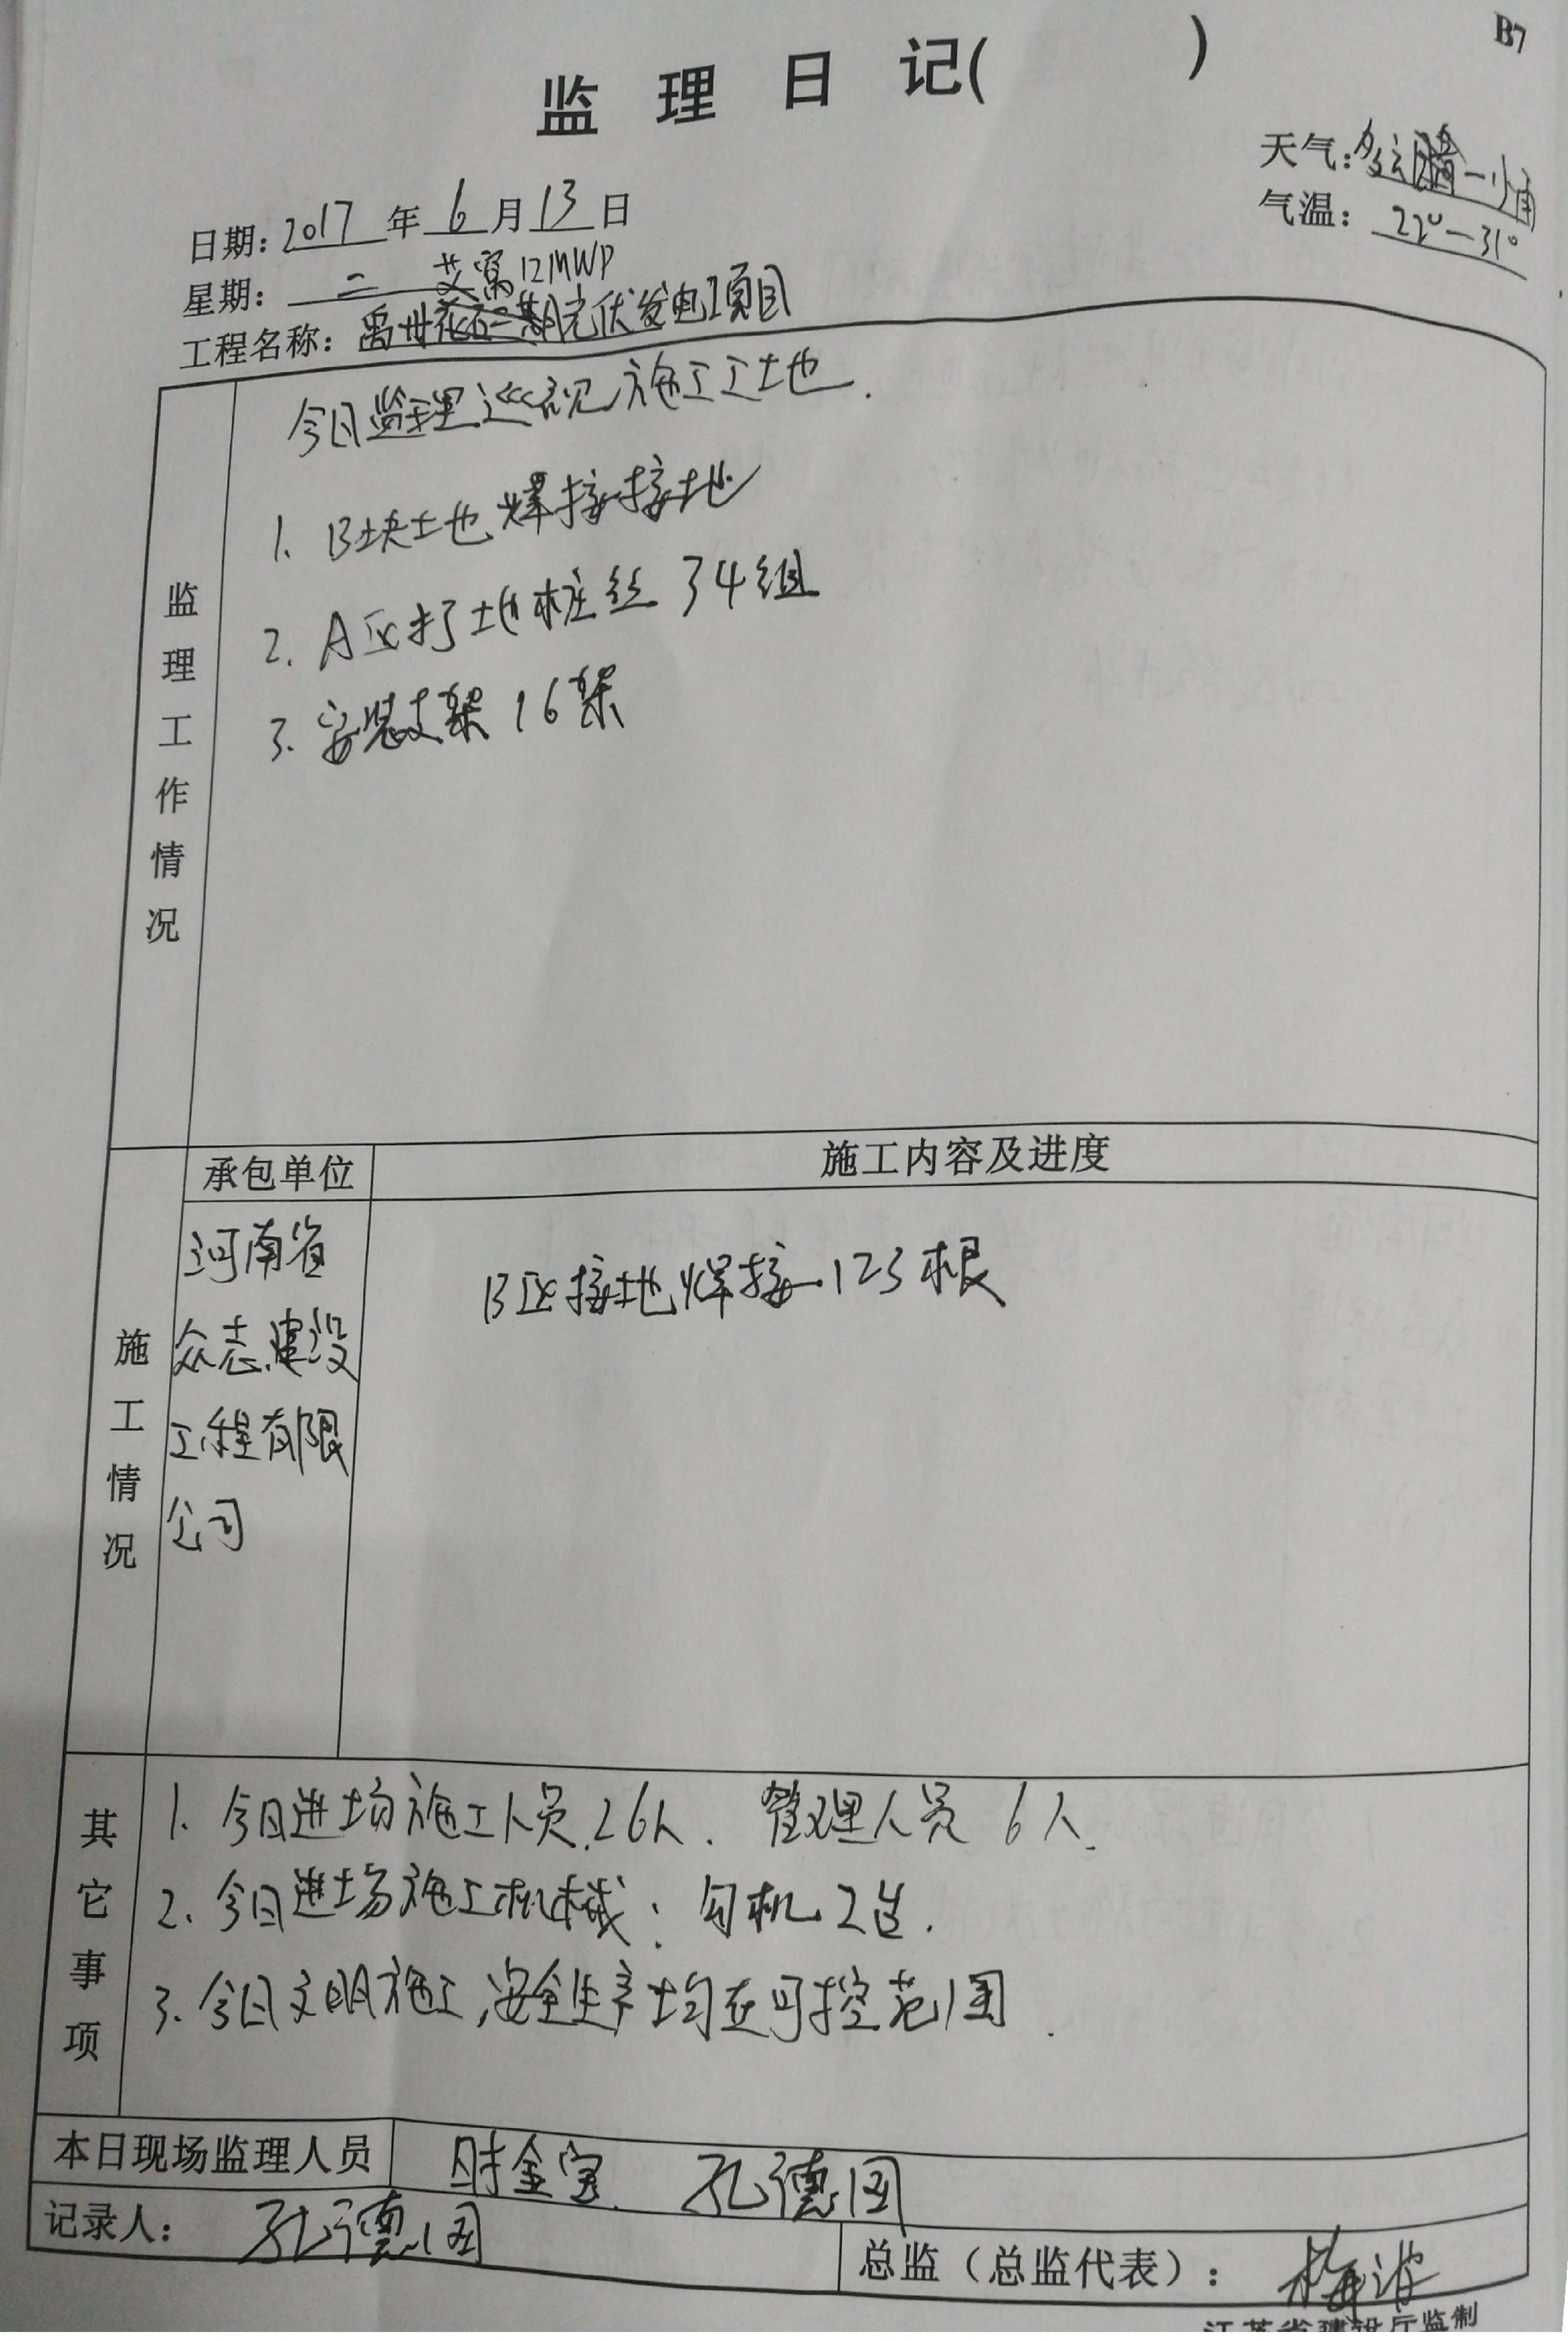 B7
监理日记( )
天气:多云晴一小雨
气温: 22°—31°
日期:2017年6月13日
星期: 二
艾窝12MWP
工程名称: 禹州花石二期光伏发电项目
监理工作情况
今日监理巡视施工工地.
1. B块土地焊接接地
2. A区打地桩丝34组
3. 安装支架16架
承包单位 施工内容及进度
施工情况
河南省
众志建设
工程有限
公司
B区接地焊接123根
其它事项
1. 今日进场施工人员26人. 管理人员6人.
2. 今日进场施工机械: 勾机2台.
3. 今日文明施工,安全生产均在可控范围.
本日现场监理人员 时金宝 孔德国
记录人: 孔德国
总监（总监代表）: 梅波
江苏省建设厅监制